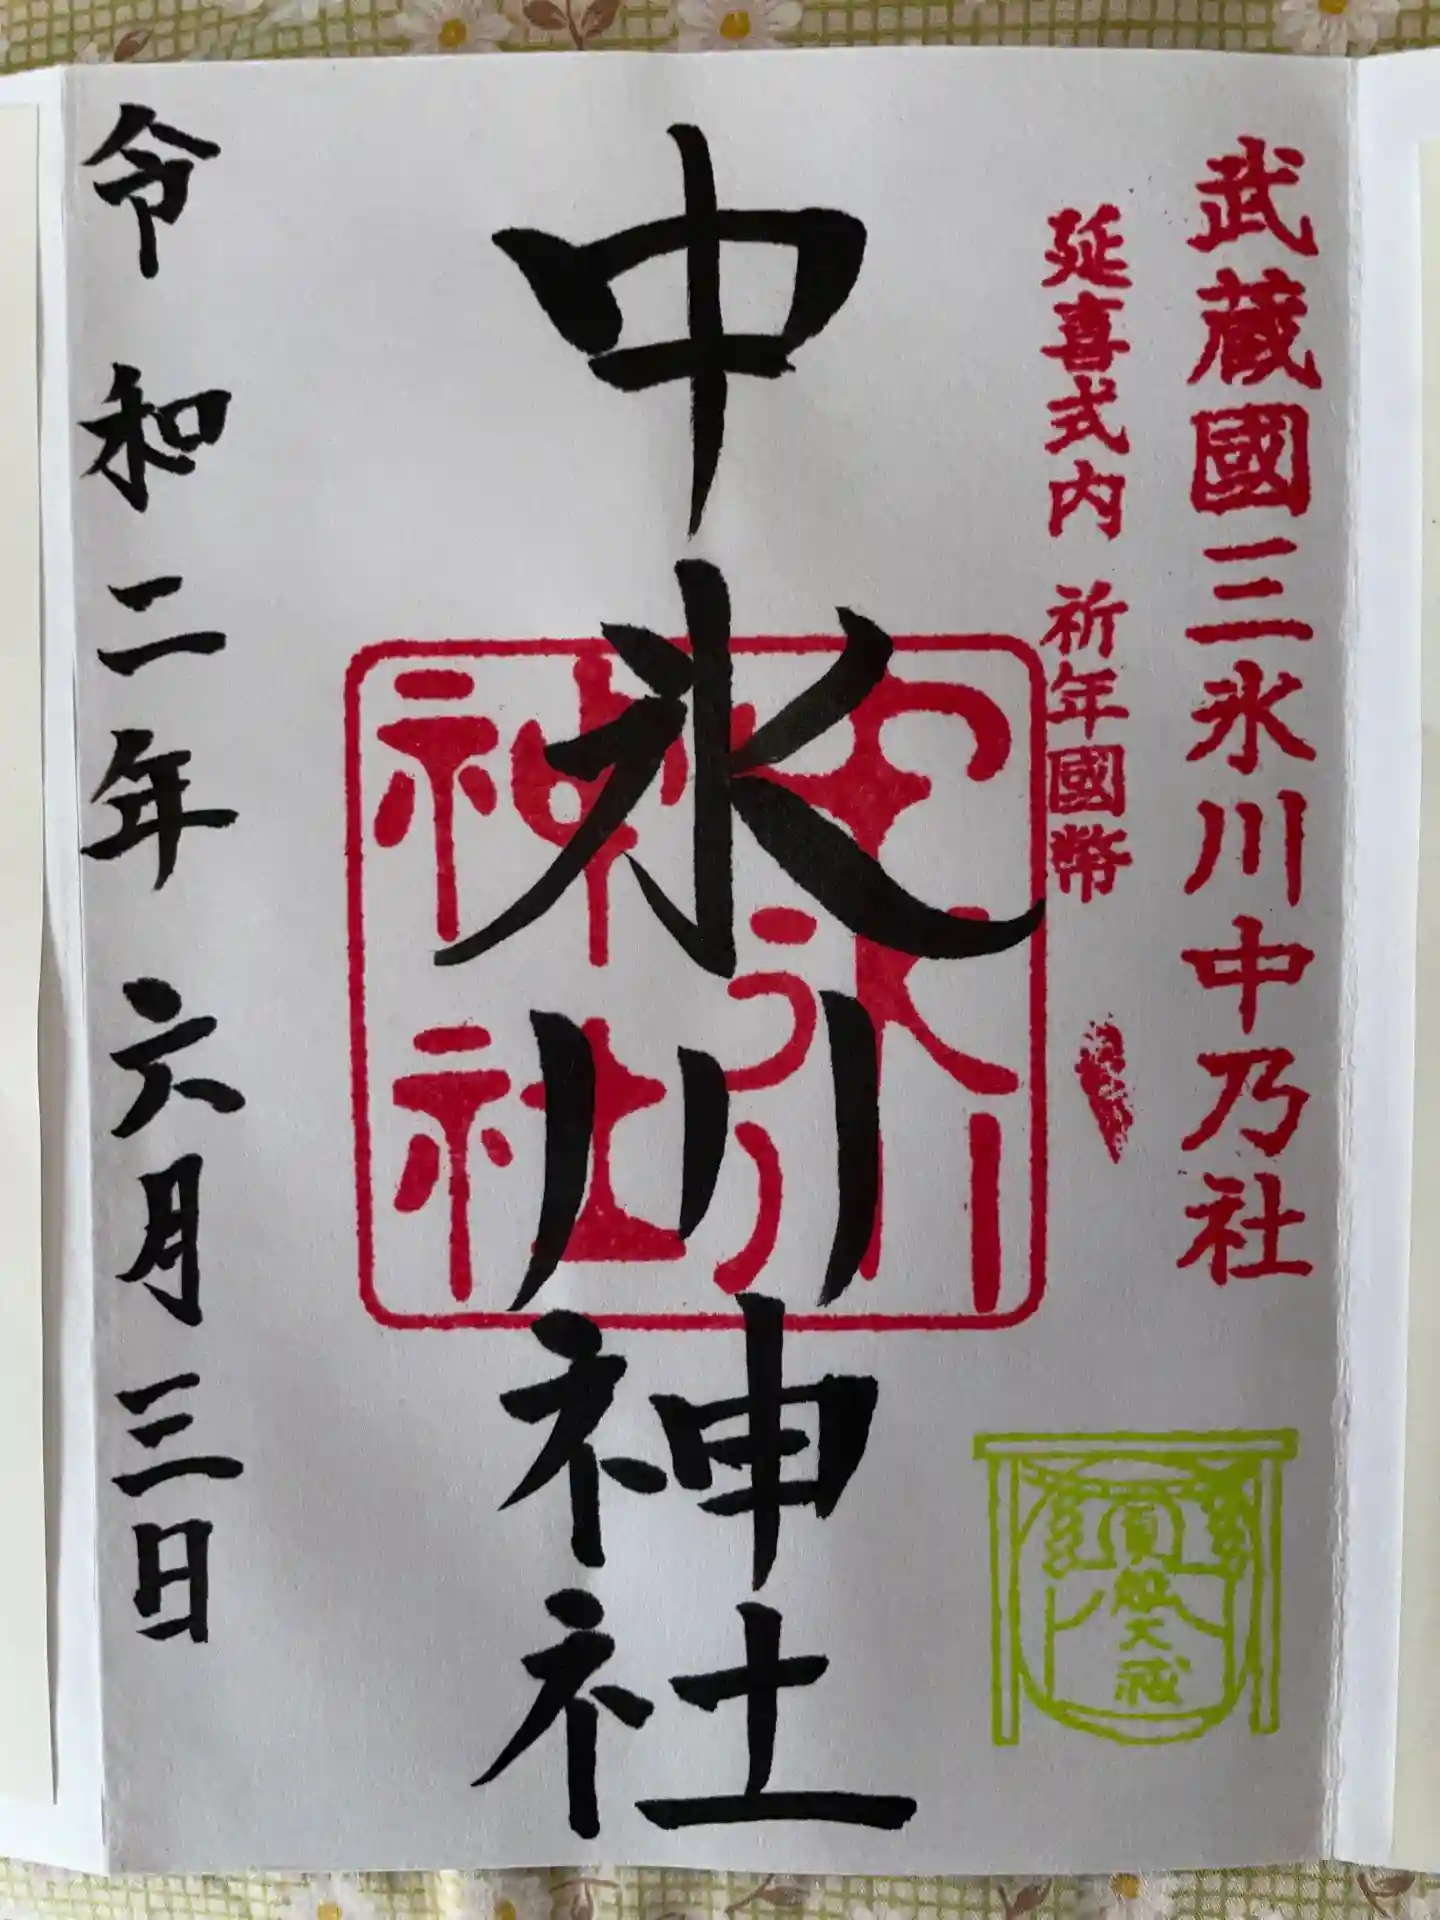 武蔵國三氷川中乃社
延喜式内 祈年國幣
中氷川神社
中氷川神社
夏越大祓
令和二年六月三日